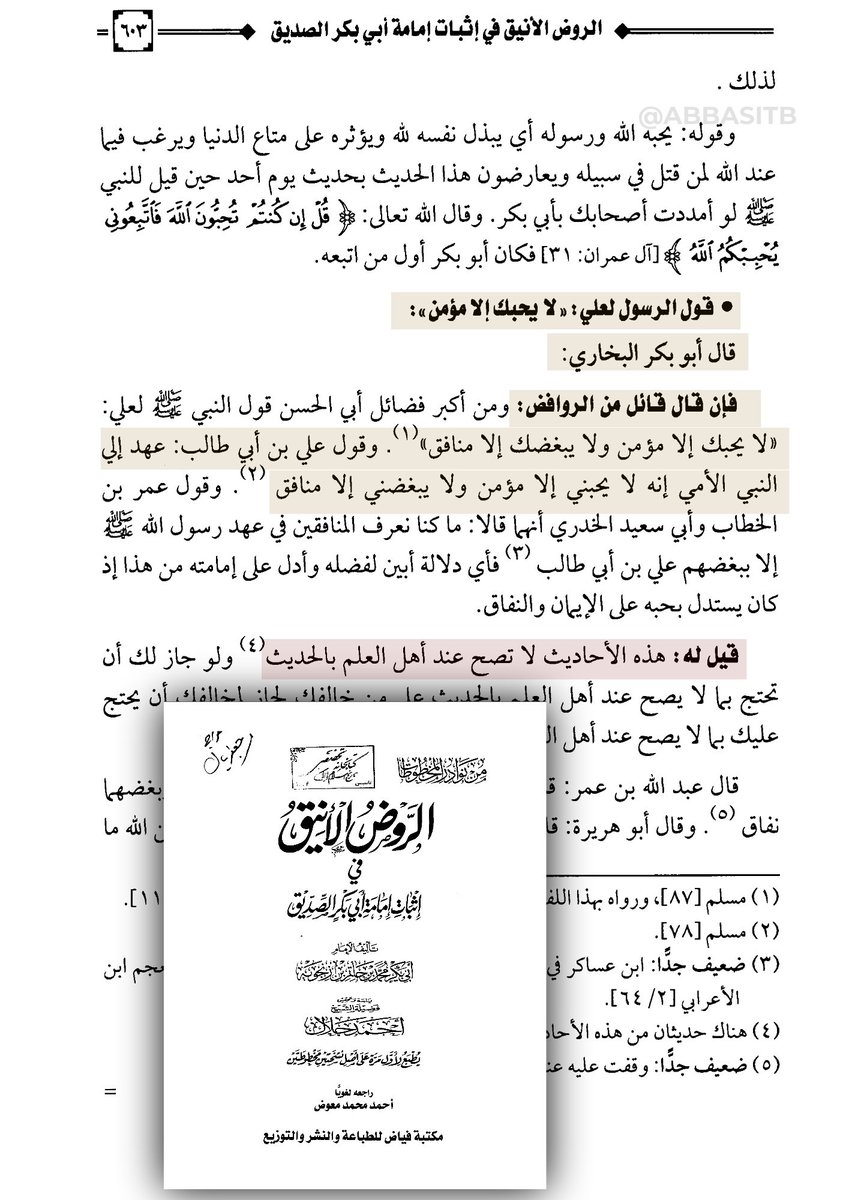 الروض الأنيق في إثبات إمامة أبي بكر الصديق
٦٠٣
لذلك .
@ABBASITB
وقوله: يحبه الله ورسوله أي يبذل نفسه لله ويؤثره على متاع الدنيا ويرغب فيما
عند الله لمن قتل في سبيله ويعارضون هذا الحديث بحديث يوم أحد حين قيل للنبي
ﷺ لو أمددت أصحابك بأبي بكر. وقال الله تعالى: ﴿ قُلْ إِن كُنتُمْ تُحِبُّونَ ٱللَّهَ فَٱتَّبِعُونِى
يُحْبِبْكُمُ ٱللَّهُ ﴾ [آل عمران: ٣١] فكان أبو بكر أول من اتبعه.
• قول الرسول لعلي: «لا يحبك إلا مؤمن»:
قال أبو بكر البخاري:
فإن قال قائل من الروافض: ومن أكبر فضائل أبي الحسن قول النبي ﷺ لعلي:
«لا يحبك إلا مؤمن ولا يبغضك إلا منافق»(١). وقول علي بن أبي طالب: عهد إلي
النبي الأمي إنه لا يحبني إلا مؤمن ولا يبغضني إلا منافق (٢). وقول عمر بن
الخطاب وأبي سعيد الخدري أنهما قالا: ما كنا نعرف المنافقين في عهد رسول الله ﷺ
إلا ببغضهم علي بن أبي طالب (٣) فأي دلالة أبين لفضله وأدل على إمامته من هذا إذ
كان يستدل بحبه على الإيمان والنفاق.
قيل له: هذه الأحاديث لا تصح عند أهل العلم بالحديث(٤) ولو جاز لك أن
تحتج بما لا يصح عند أهل العلم بالحديث على من خالفك لجاز لمخالفك أن يحتج
عليك بما لا يصح عند أهل
قال عبد الله بن عمر: بغضهما
نفاق (٥). وقال أبو هريرة: الله ما
(١) مسلم [٨٧]، ورواه بهذا
(٢) مسلم [٧٨].
(٣) ضعيف جدًّا: ابن عساكر في ابن
الأعرابي [٢/ ٦٤].
(٤) هناك حديثان من هذه
(٥) ضعيف جدًّا: وقفت عليه
=
من نوادر المخطوطات
الروض الأنيق
في
إثبات إمامة أبي بكر الصديق
تأليف الإمام
أبي بكر محمد بن حاتم بن زنجويه
فضيلة الشيخ
أحمد حلال
يطبع لأول مرة على أصل نسختين مخطوطتين
راجعه لغويًا
أحمد محمد معوض
مكتبة فياض للطباعة والنشر والتوزيع